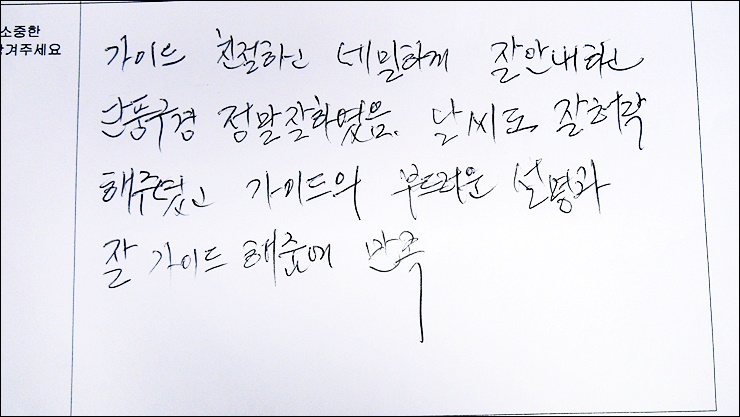 소중한
남겨주세요
가이드 친절하고 세밀하게 잘안내하고
단풍구경 정말잘하였음. 날씨도 잘허락
해주었고 가이드의 부드러운 설명과
잘 가이드 해줌에 만족